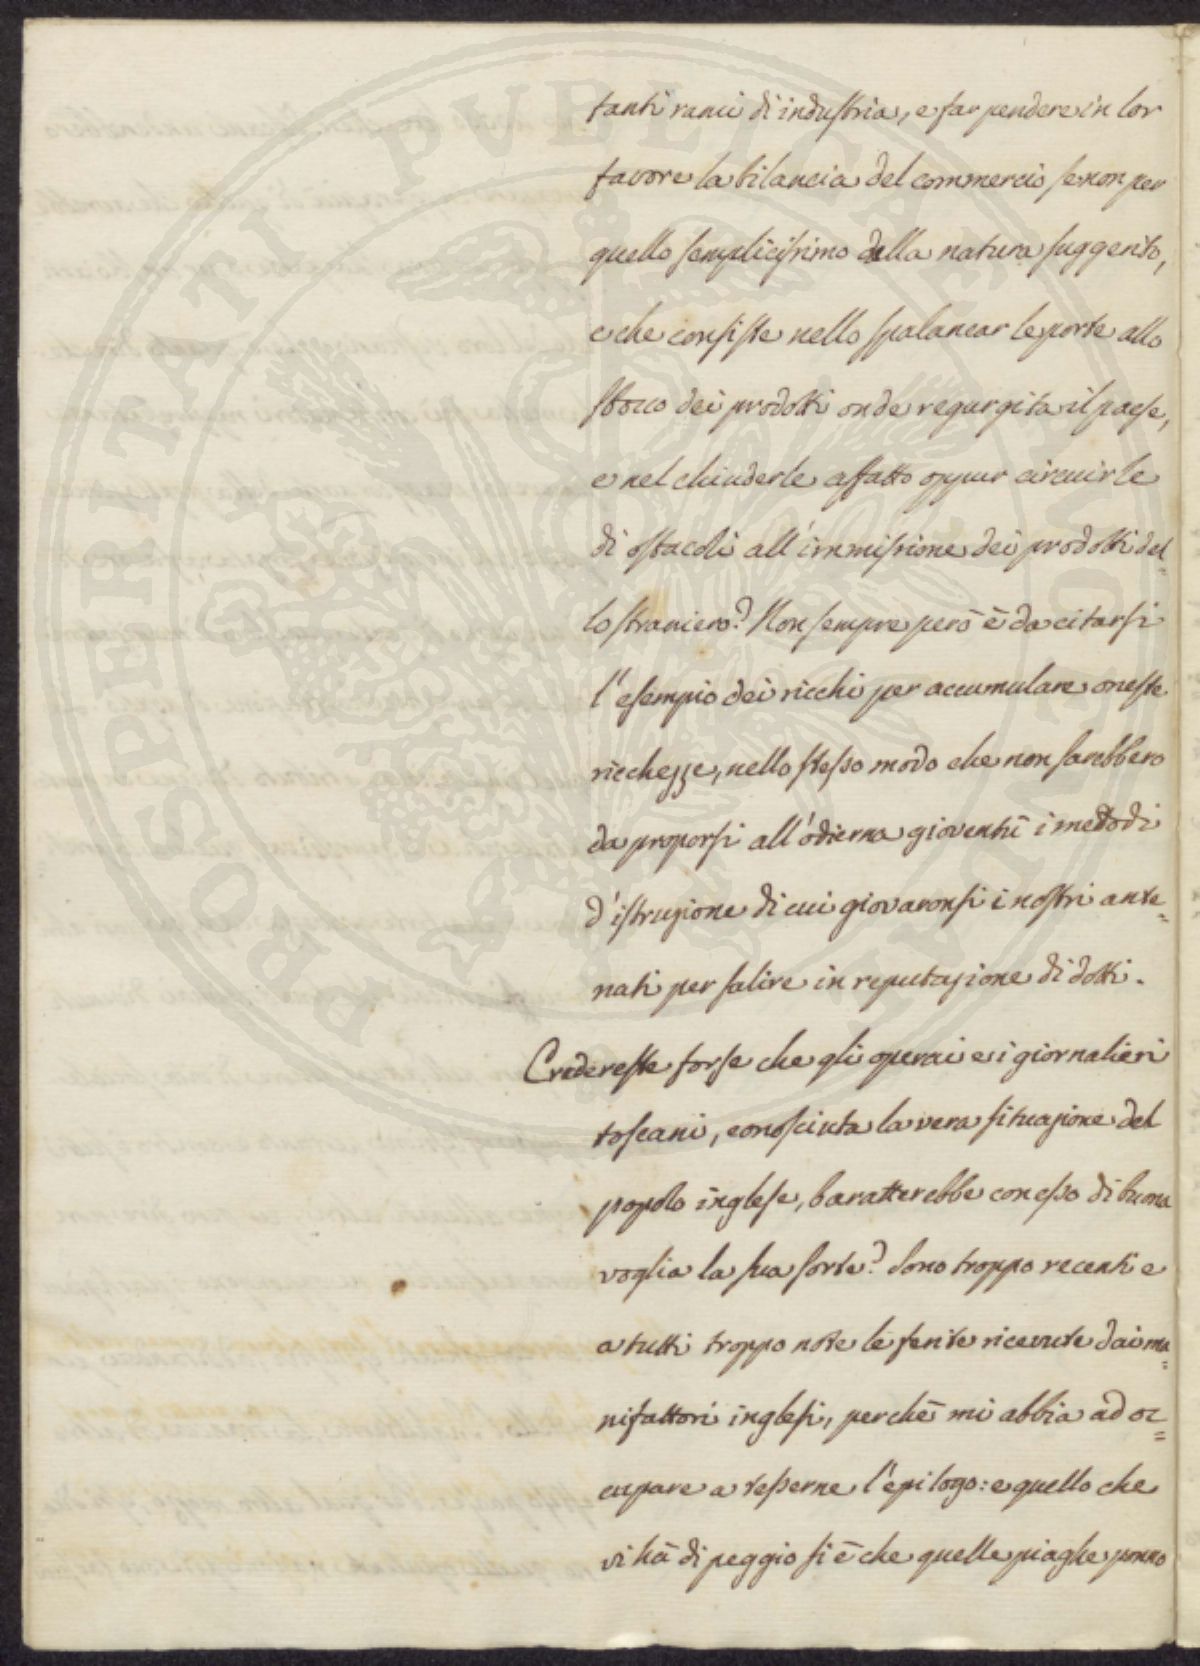 tanti rami di industria, e far pendere in lor
favore la bilancia del commercio se non per
quello semplicissimo dalla natura suggerito,
e che consiste nello spalancar le porte allo
sbocco dei prodotti onde regurgita il paese,
e nel chiuderle affatto oppur circuirle
di ostacoli all'immissione dei prodotti del=
lo straniero? Non sempre però è da citarsi
l'esempio dei ricchi per accumulare oneste
ricchezze, nello stesso modo che non sarebbero
da proporsi all'odierna gioventù i metodi
d'istruzione di cui giovaronsi i nostri ante=
nati per salire in reputazione di dotti.
Credereste forse che gli operai e i giornalieri
toscani, conosciuta la vera situazione del
popolo inglese, baratterebbe con esso di buona
voglia la sua sorte? Sono troppo recenti e
a tutti troppo note le ferite ricevute dai ma=
nifattori inglesi, perchè mi abbia ad oc=
cupare a tesserne l'epilogo: e quello che
vi hà di peggio si è che quelle piaghe ponno
PROSPERITATI PVBLICAE AVGENDAE